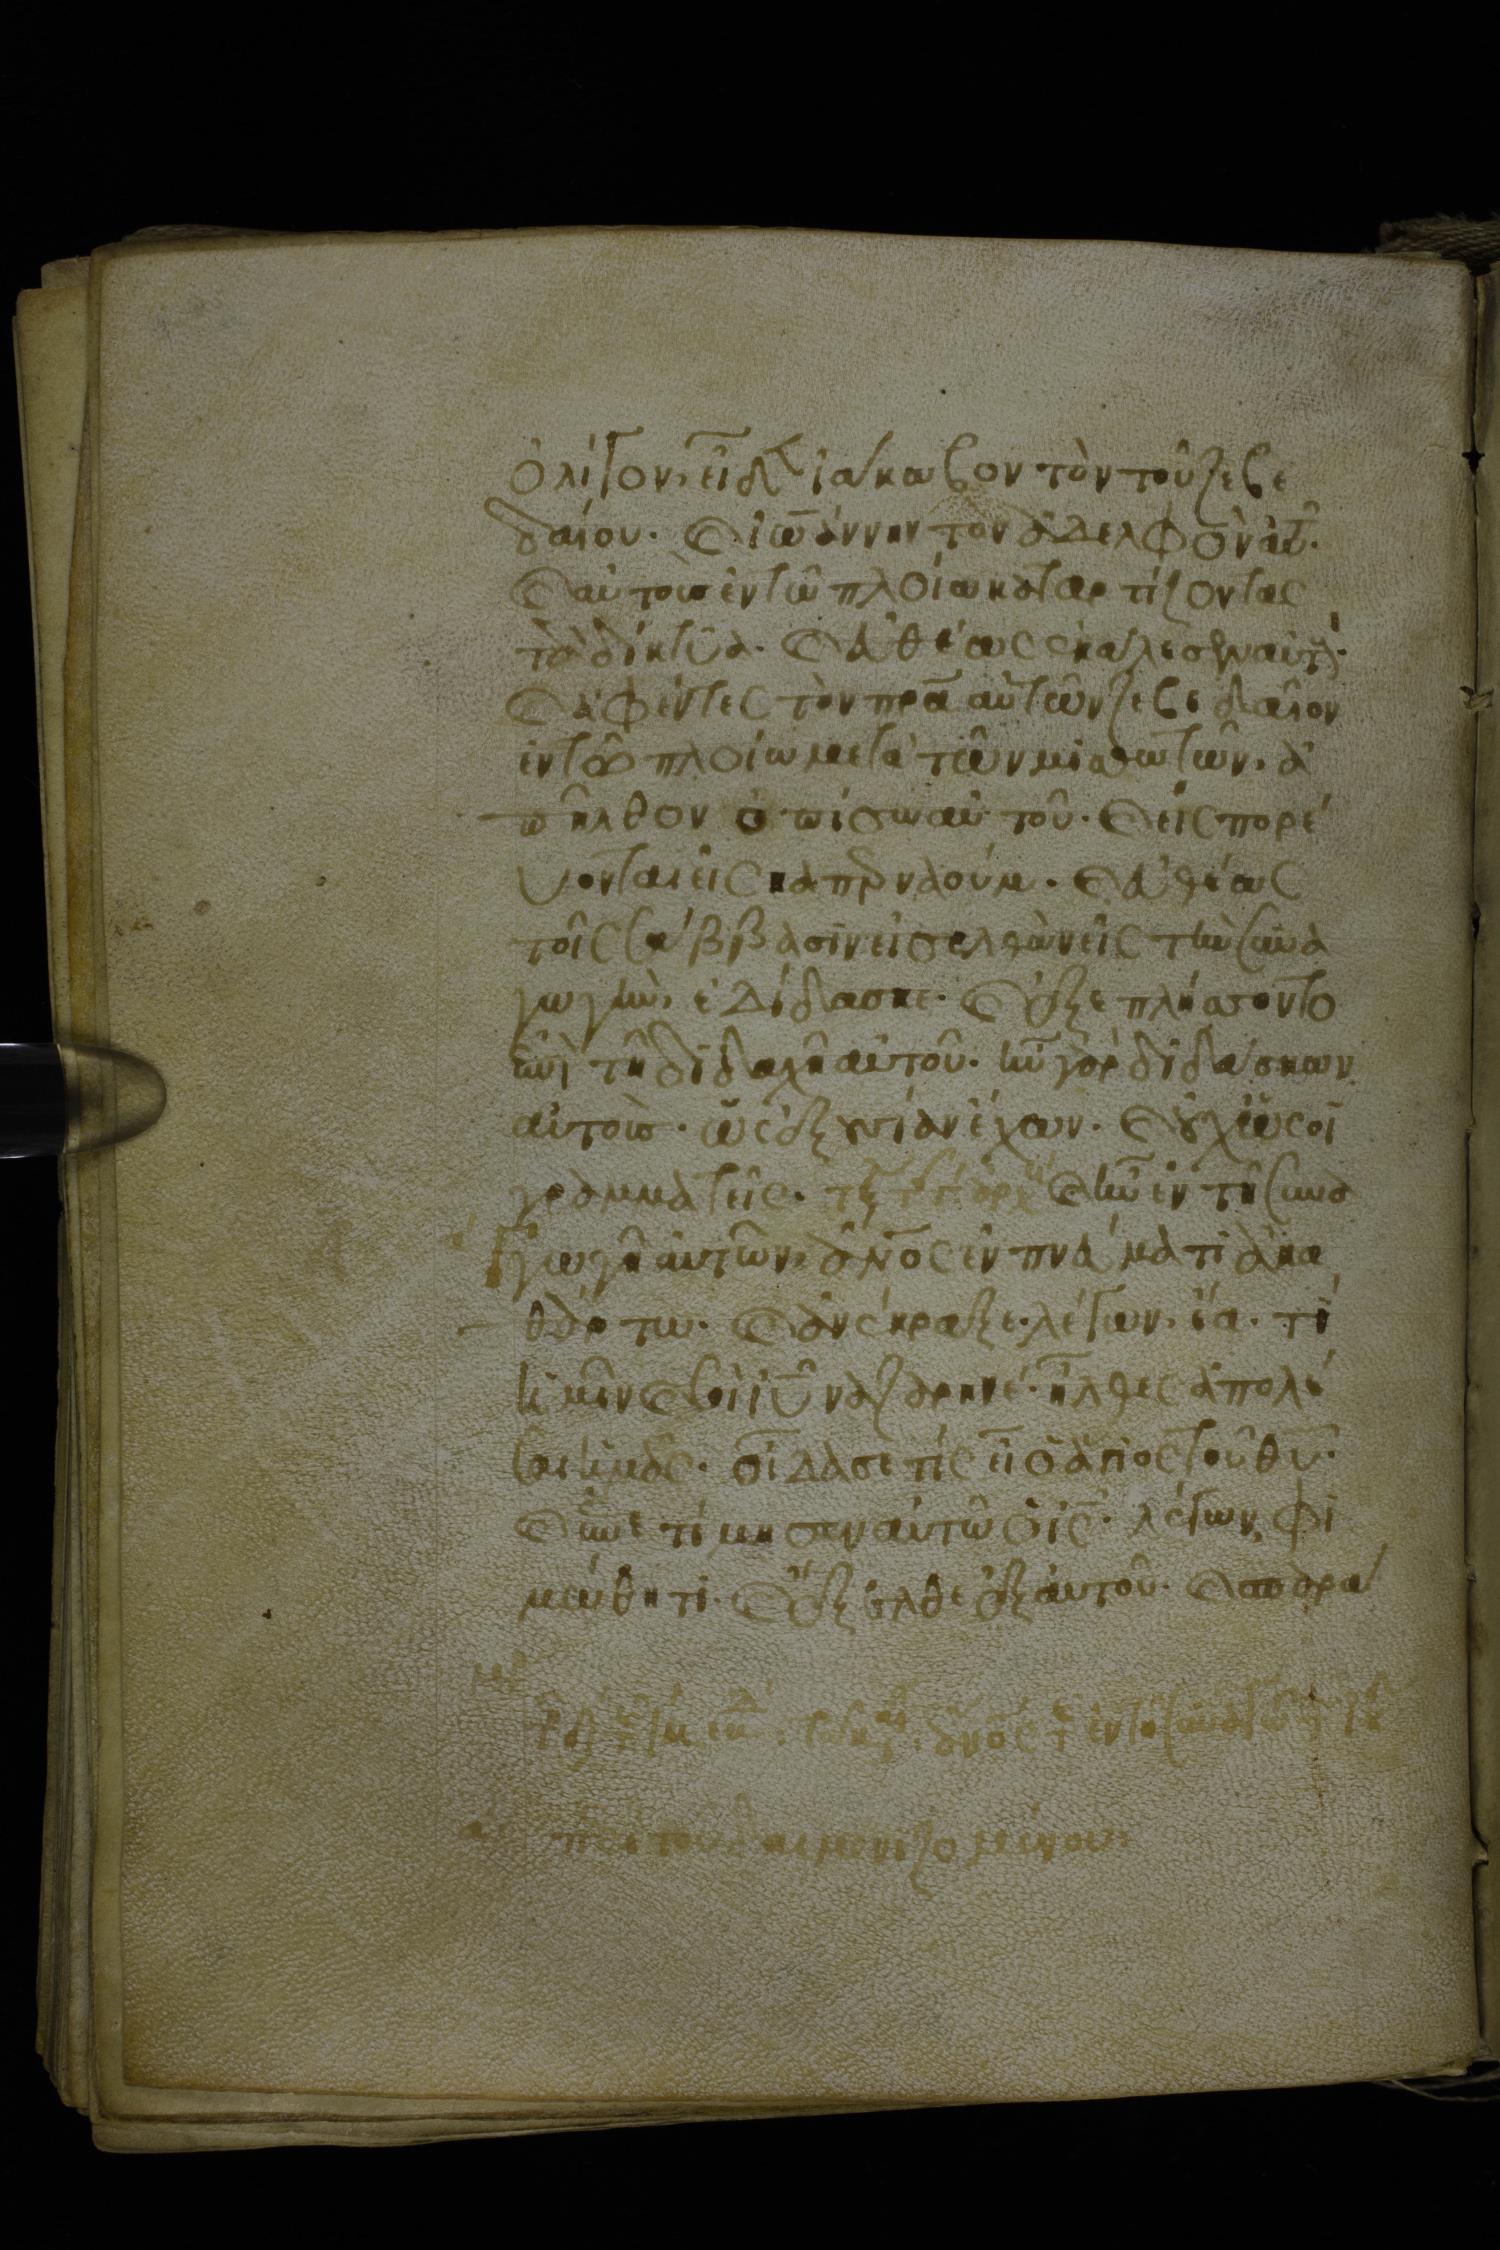 ὀλίγον, εἶδεν ἰάκωβον τὸν τοῦ ζεβε
δαίου. καὶ ἰωάννην τὸν ἀδελφὸν αὐτοῦ.
καὶ αὐτοὺσ ἐν τῶ πλοίω καταρτίζοντας
τὰ δίκτυα. καὶ εὐθέως ἐκάλεσεν αὐτούς.
καὶ ἀφέντες τὸν πρα αὐτῶν ζεβεδαῖον
ἐν τῶ πλοίω μετὰ τῶν μισθωτῶν, ἀ
πῆλθον ὀπίσω αὐτοῦ. καὶ εἰσπορεύ
ονται εἰς καπερναούμ. καὶ εὐθέως
τοῖς σάββασιν εἰσελθὼν εἰς τὴν συνα
γωγὴν, ἐδίδασκε. καὶ ἐξεπλήσσοντο
ἐπὶ τῆ διδαχῆ αὐτοῦ. ἦν γὰρ διδάσκων
αὐτοὺσ. ὡς ἐξουσίαν ἔχων. καὶ οὐχ ὡς οἱ
γραμματεῖς. καὶ ἦν ἐν τῆ συνα
γωγῆ αὐτῶν, ἄνος ἐν πνεύματι ἀκα
θάρτω. καὶ ἀνέκραξε λέγων, ἔα. τί
ἡμῖν καὶ σοὶ ιυ ναζαρηνέ. ἦλθες ἀπολέ
σαι ἡμᾶς. οἶδά σε τίς εἶ ὁ ἅγιος τοῦ θυ.
καὶ ἐπετίμησεν αὐτῶ ὁ ις. λέγων, φι
μώθητι. καὶ ἔξελθε ἐξ αὐτοῦ. καὶ σπαρά
τοῦ δαιμονιζομένου: